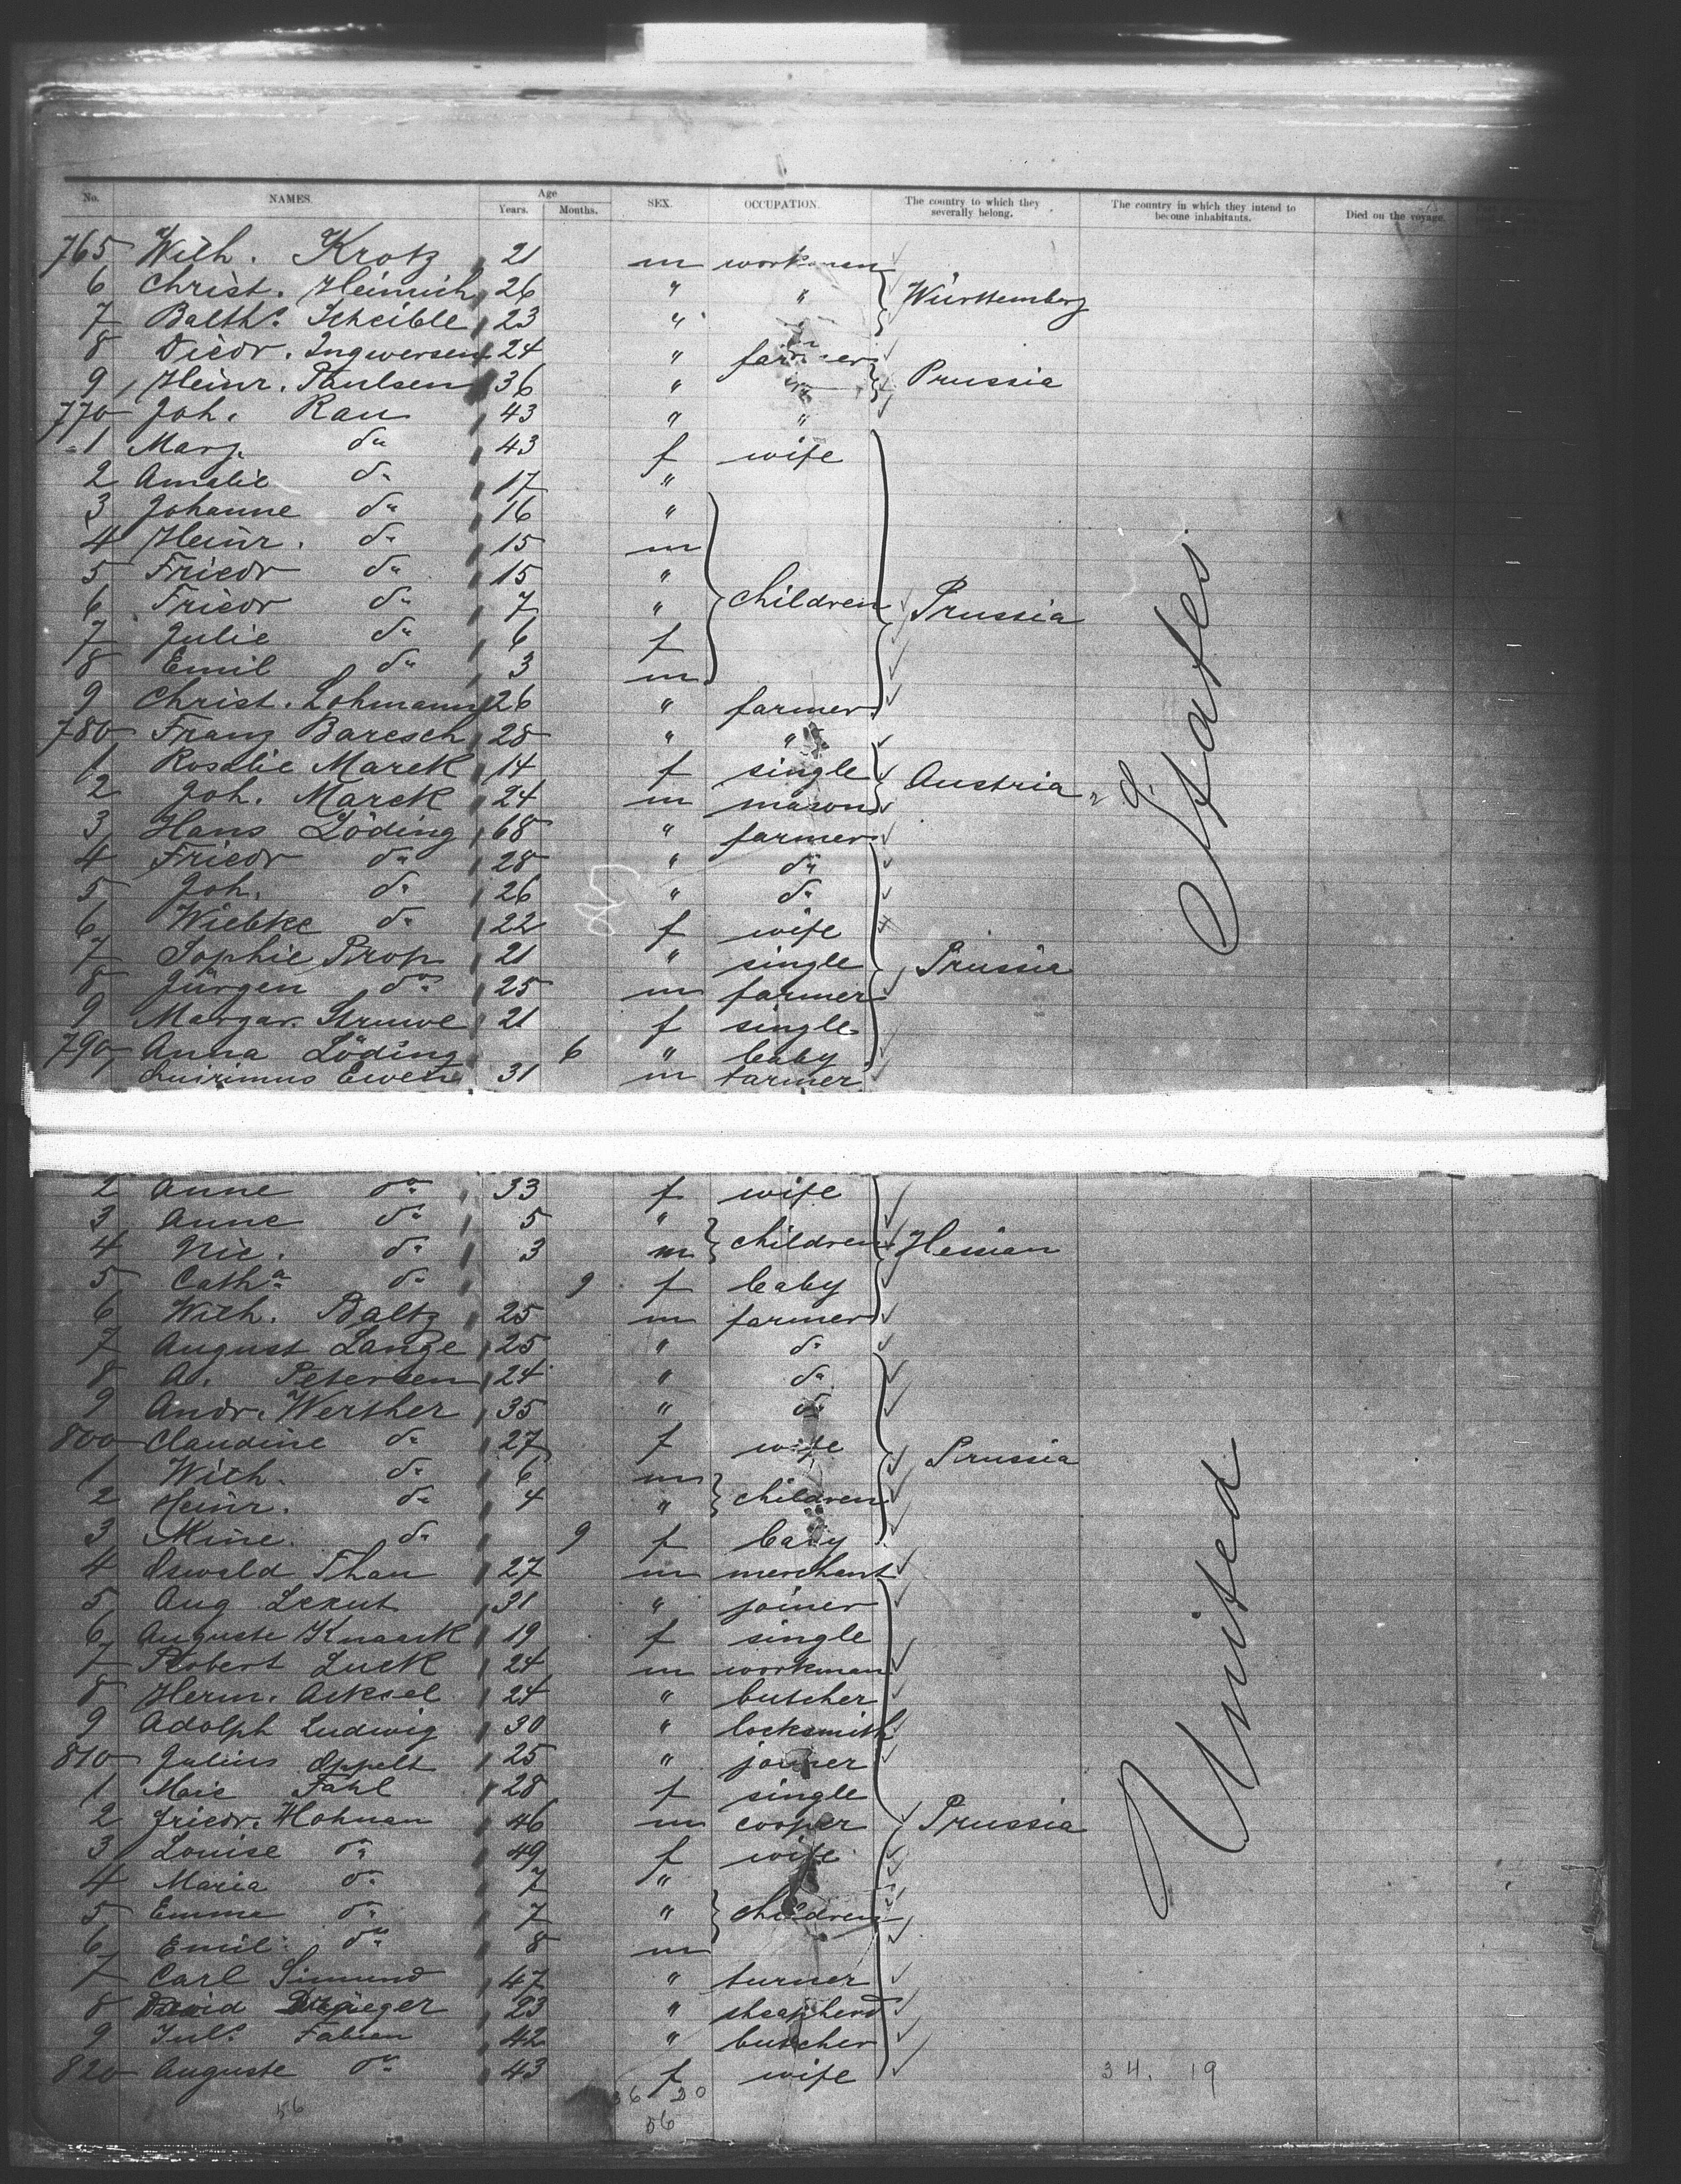 No. NAMES. Age Years. Months. SEX. OCCUPATION. The country to which they severally belong. The country in which they intend to become inhabitants. Died on the voyage.
765 Wilh. Krotz 21 m workman
6 Christ. Heinrich 26 " " Württemberg
7 Balths. Scheible 23 " "
8 Diedr. Ingwersen 24 " farmer
9 Heinr. Paulsen 36 " " Prussia
770 Joh. Rau 43 " "
1 Marg. do 43 f wife
2 Amalie do 17 "
3 Johanne do 16 "
4 Heinr. do 15 m
5 Friedr do 15 "
6 Friedr do 7 " children Prussia
7 Julie do 6 f
8 Emil do 3 m
9 Christ. Lohmann 26 " farmer
780 Franz Baresch 28 " "
1 Rosalie Marek 14 f single Austria
2 Joh. Marek 24 m mason
3 Hans Löding 68 " farmer
4 Friedr do 28 " do
5 Joh. do 26 " do
6 Wiebke do 22 f wife
7 Sophie Prop 21 " single Prussia
8 Jürgen do 25 m farmer
9 Margar. Struwe 21 f single
790 Anna Löding 6 " baby
Quirimus Ewen 31 m farmer
2 Anne do 33 f wife
3 Anne do 5 "
4 Nic. do 3 m children Hessian
5 Catha do 9 f baby
6 Wilh. Baltz 25 m farmer
7 August Lange 25 " do
8 A. Petersen 24 " do
9 Andr. Werther 35 " do
800 Claudine do 27 f wife Prussia
1 Wilh. do 6 m
2 Heinr. do 4 " children
3 Mine. do 9 f baby
4 Oswald Thau 27 m merchant
5 Aug Lexut 31 " joiner
6 Auguste Knaack 19 f single
7 Robert Luck 24 m workman
8 Herm. Acksel 24 " butcher
9 Adolph Ludwig 30 " locksmith
810 Julius Oppelt 25 " joiner
1 Marie Fahl 28 f single
2 Friedr. Hohnan 46 m cooper Prussia
3 Louise do 49 f wife
4 Maria do 7 "
5 Emma do 7 " children
6 Emil do 8 m
7 Carl Simund 47 " turner
8 David 23 " sheapherd
9 Juls. Fabian 42 " butcher
820 Auguste do 43 f wife
United States
34. 19
36 20
56
56